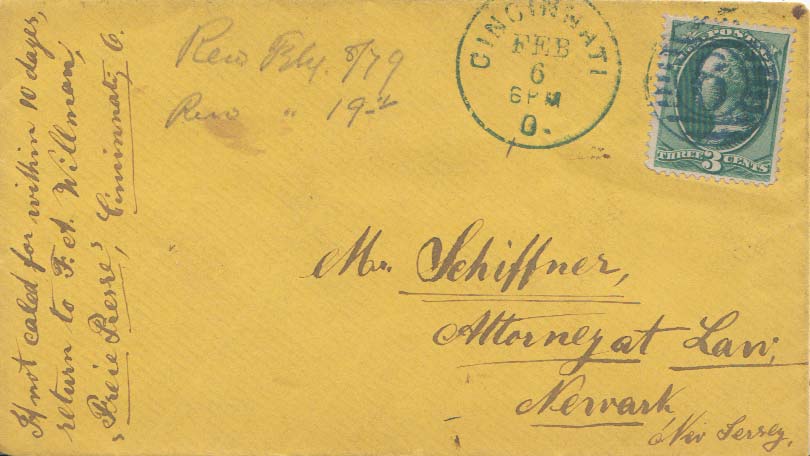 If not caled for within 10 dayes,
return to F. A. Willman,
„Freie Presse", Cincinnati, O.
Recd Feby. 8/79
19
CINCINNATI
FEB
6
6 PM
O.
POSTAGE
THREE 3 CENTS
Mr. Schiffner,
Attorney at Law,
Newark
New Jersey.